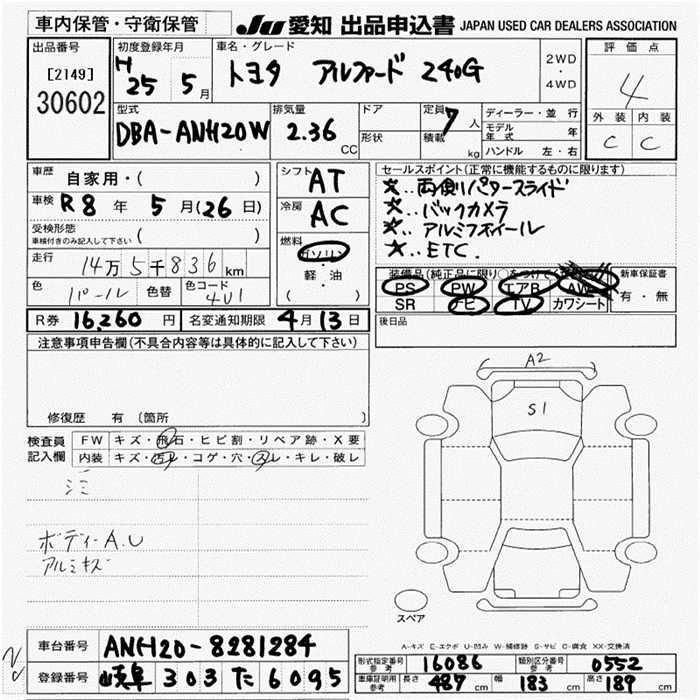 車内保管・守衛保管 JU 愛知 出品申込書 JAPAN USED CAR DEALERS ASSOCIATION
出品番号 初度登録年月 車名・グレード 2WD ・ 4WD 評価点
[2149] H 25 5月 トヨタ アルファード 240G 4
30602 型式 排気量 ドア 定員 7人 ディーラー・並行 外装 内装
DBA-ANH20W 2.36 CC 形状 積載 kg モデル年式 年 C C
ハンドル 左・右
車歴 自家用・( ) シフト AT セールスポイント(正常に機能するものに限ります)
車検 R8年 5月(26日) 冷房 AC ☆‥両側パワースライド
受検形態 車検付きのみ記入して下さい ( ) ☆‥バックカメラ
燃料 ガソリン ・ 軽・油 ( ) ☆‥アルミホイール
走行 14万5千836km ☆‥ETC.
色 パール 色替 色コード 4U1 装備品(純正品に限り○をつけてください) 新車保証書
PS PW エアB AW 有・無
SR ナビ TV カワシート
R券 16,260円 名変通知期限 4月13日 後日品
注意事項申告欄(不具合内容等は具体的に記入して下さい)
A2
S1
修復歴 有 〔箇所
検査員記入欄 FW キズ・飛石・ヒビ割・リペア跡・X要
内装 キズ・汚レ・コゲ・穴・スレ・キレ・破レ
シミ
ボディーA.U
アルミキズ
スペア
A-キズ E-エクボ U-凹み W-補修跡 S-サビ C-腐食 XX-交換済
車台番号 ANH20-8281284
登録番号 岐阜 303 た 6095
形式指定番号 参考 16086 類別区分番号 参考 0552
車庫証明用 参考 長さ 487cm 幅 183cm 高さ 189cm